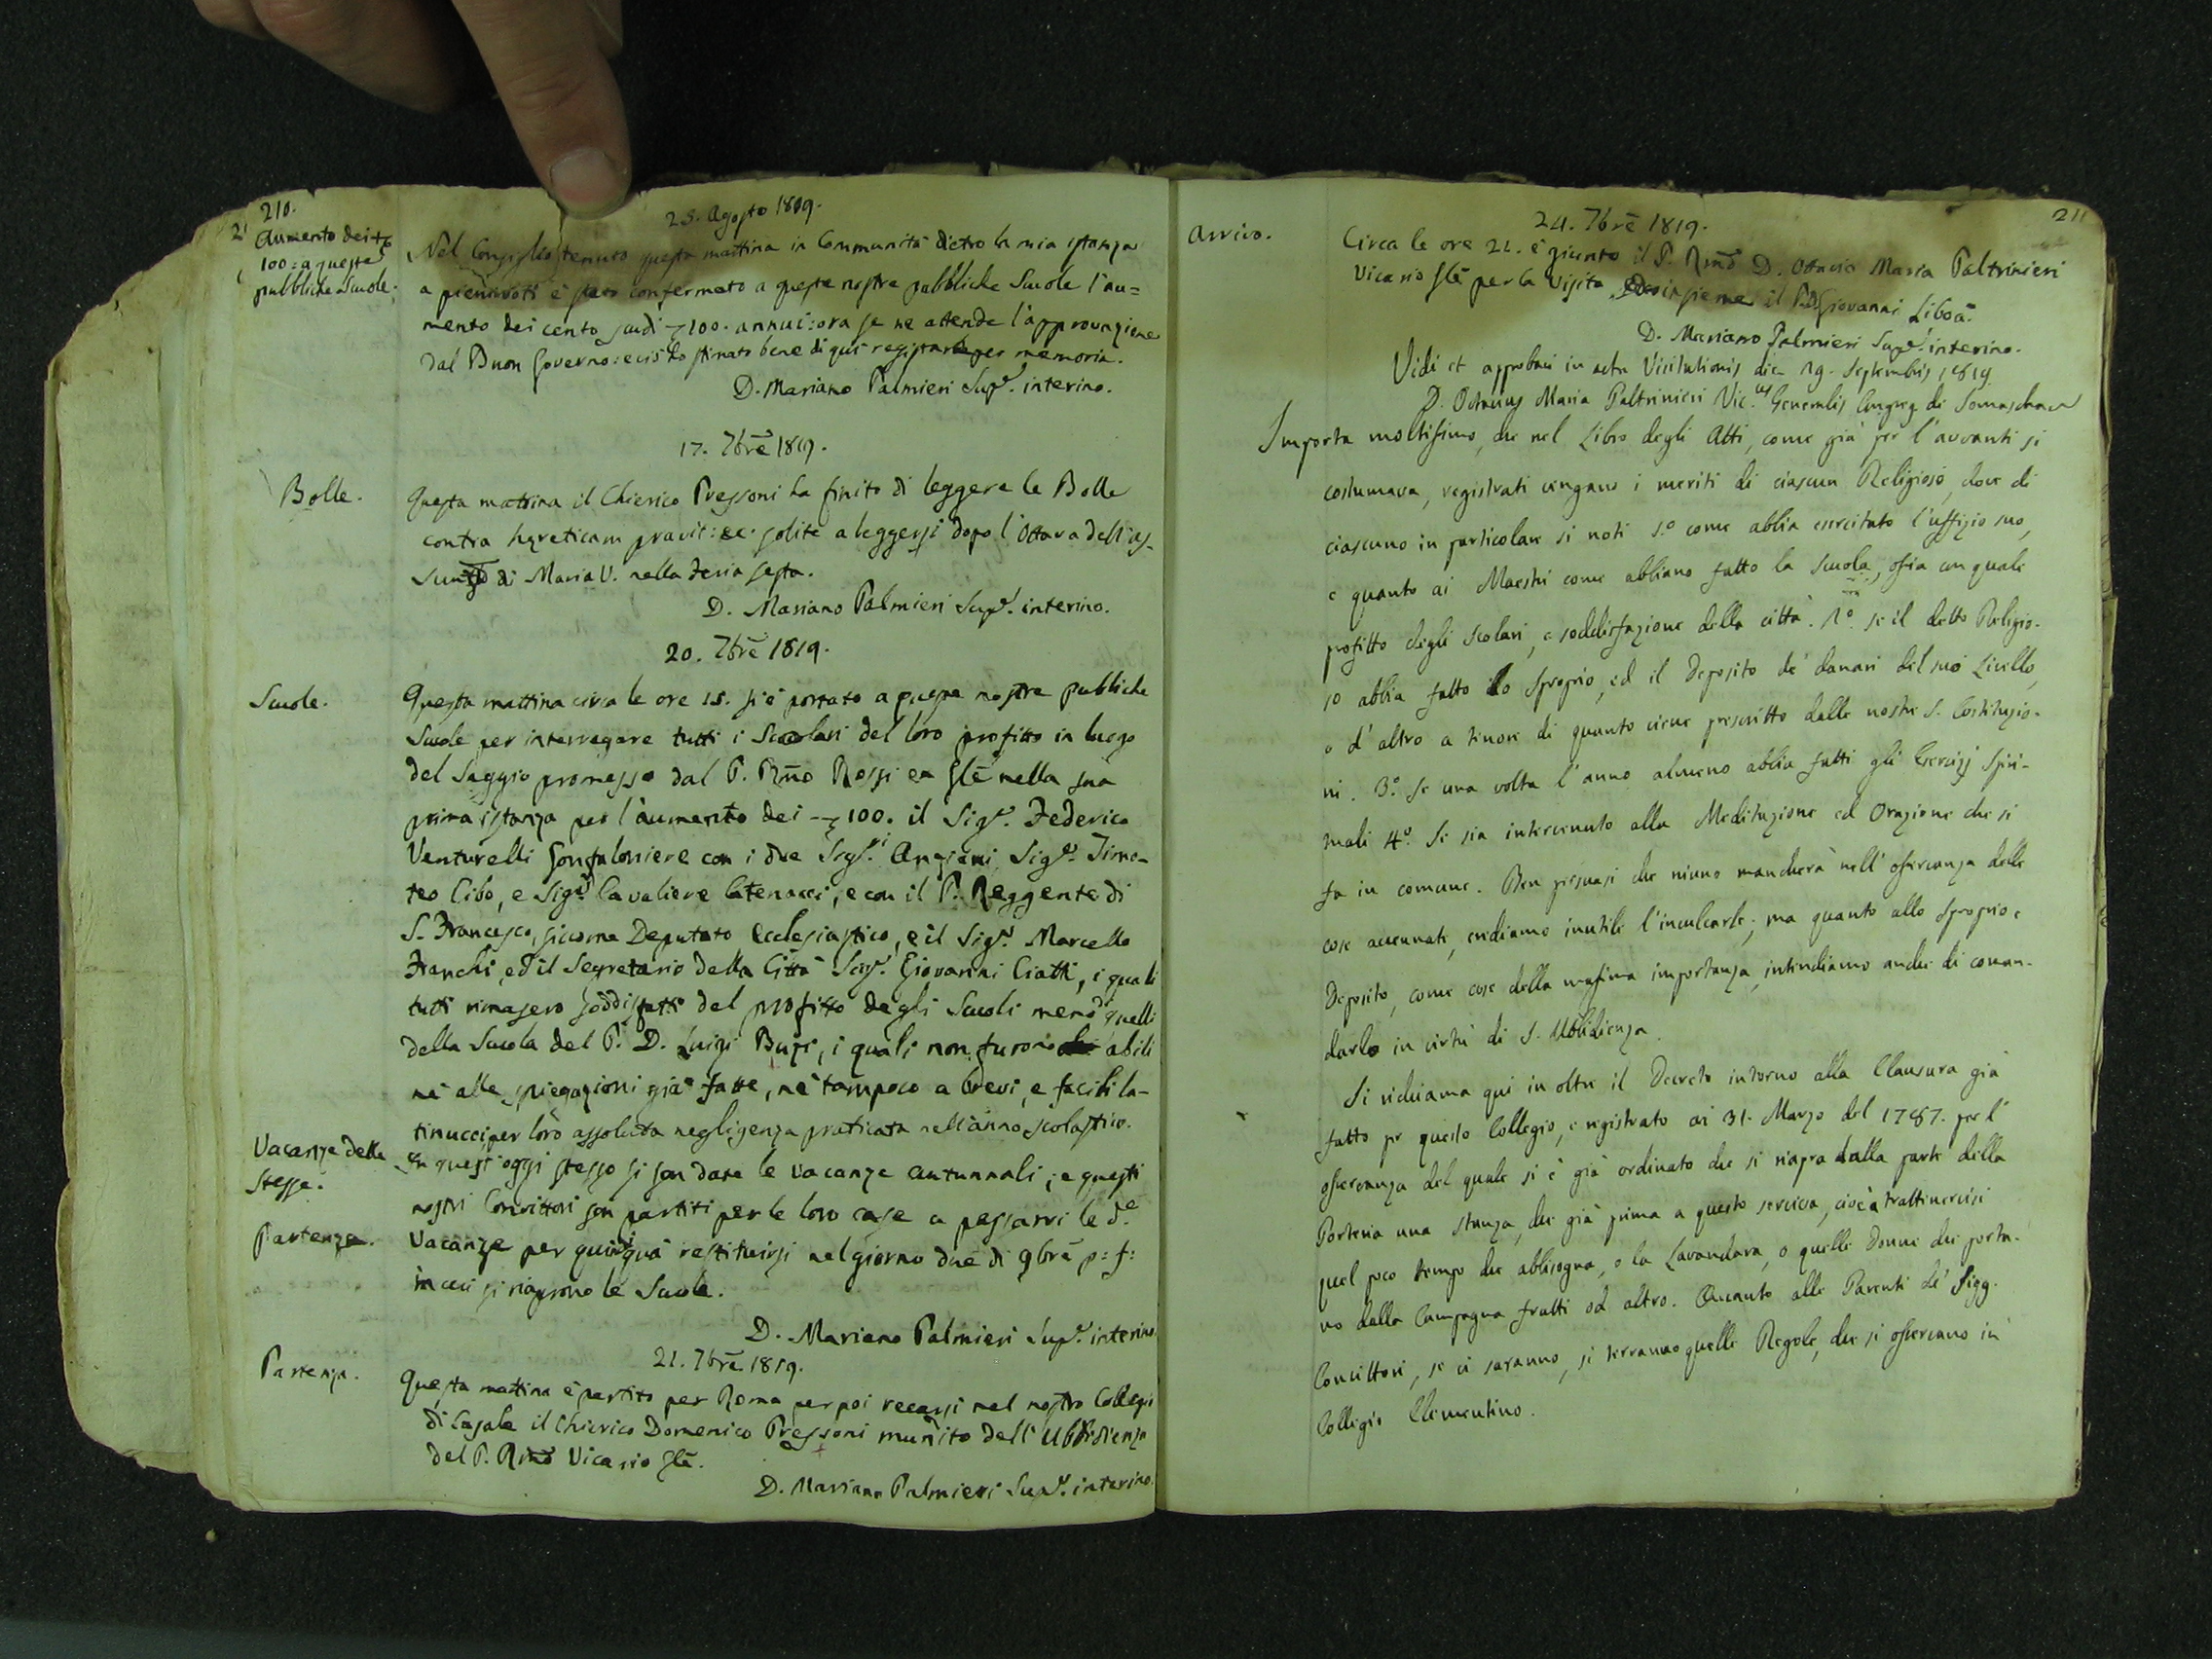 210.
23. Agosto 1819.
Aumento dei
100: a queste
pubbliche Scuole.
Nel Consiglio tenuto questa mattina in Communità dietro la mia istanza
a pieni voti è stato confermato a queste nostre pubbliche Scuole l'au=
mento dei cento scudi 100. annui: ora se ne attende l'approvazione
dal Buon Governo: e ciò ho stimato bene di qui registrarlo per memoria.
D. Mariano Palmieri Supe. interino.
17. 7bre 1819.
Bolle.
Questa mattina il Chierico Pressoni ha finito di leggere le Bolle
contra hæreticam pravit: &c. solite a leggersi dopo l'Ottava dell'As-
sunto di Maria V. nella feria sesta.
D. Mariano Palmieri Supe. interino.
20. 7bre 1819.
Scuole.
Questa mattina circa le ore 15. si è portato a queste nostre pubbliche
Scuole per interrogare tutti i Scolari del loro profitto in luogo
del Saggio promesso dal P. Rmo Rossi ex Gle nella sua
prima istanza per l'aumento dei 100. il Sigr. Federico
Venturelli Gonfaloniere con i due Sigri. Anziani Sigr. Timo-
teo Cibo, e Sigr. Cavaliere Catenacci, e con il P. Reggente di
S. Francesco, siccome Deputato Ecclesiastico, e il Sigr. Marcello
Franchi, ed il Segretario della Città Sigr. Giovanni Ciatti, i quali
tutti rimasero soddisfatti del profitto degli Scuoli meno di quelli
della Scuola del P. D. Luigi Buzi, i quali non furono abili
nè alle spiegazioni già fatte, nè tampoco a brevi, e facili la-
tinucci per loro assoluta negligenza praticata nell'anno scolastico.
Vacanze delle
Stesse.
In quest'oggi stesso si son date le vacanze autunnali; e questi
nostri Convittori son partiti per le loro case a passarvi le de.
Partenza.
Vacanze per quindi quà restituirsi nel giorno due di 9bre p: f:
in cui si riaprono le Scuole.
D. Mariano Palmieri Supe. interino.
21. 7bre 1819.
Partenza.
Questa mattina è partito per Roma per poi recarsi nel nostro Collegio
di Casale il Chierico Domenico Pressoni munito dell'Ubbidienza
del P. Rmo Vicario Gle.
D. Mariano Palmieri Supe. interino.
211
24. 7bre 1819.
Arrivo.
Circa le ore 21. è giunto il P. Rmo D. Ottavio Maria Paltrinieri
Vicario Gle per la Visita, insieme il P. D. Giovanni Liboà.
D. Mariano Palmieri Supe. interino.
Vidi et approbavi in actu Visitationis die 29. Septembris 1819
D. Octavius Maria Paltrinieri Vic.us Generalis Congreg. di Somascha
Importa moltissimo, che nel Libro degli Atti, come già per l'avvanti si
costumava, registrati vengano i meriti di ciascun Religioso, dove di
ciascuno in particolare si noti 1.o come abbia esercitato l'uffizio suo,
e quanto ai Maestri come abbiano fatto la Scuola, ossia con quale
profitto degli Scolari, e soddisfazione della città. 2.o se il detto Religio-
so abbia fatto lo Sproprio, ed il Deposito de' danari del suo Livello,
o d'altro a tenore di quanto viene prescritto dalle nostre S. Costituzio-
ni. 3.o Se una volta l'anno almeno abbia fatti gli Esercizj Spiri-
tuali 4.o Se sia intervenuto alla Meditazione ed Orazione che si
fa in comune. Ben persuasi che niuno mancherà nell'osservanza delle
cose accennate, crediamo inutile l'inculcarle; ma quanto allo Sproprio e
Deposito, come cose della massima importanza, intendiamo anche di coman-
darlo in virtù di S. Ubbidienza.
Si richiama qui in oltre il Decreto intorno alla Clausura già
fatto pr questo Collegio, e registrato ai 31. Marzo del 1787. per l'
osservanza del quale si è già ordinato che si riapra dalla parte della
Porteria una stanza, che già prima a questo serviva, cioè a trattenervisi
quel poco tempo che abbisogna, o la Lavandara, o quelle Donne che porta-
no dalla Campagna frutti od altro. Quanto alle Parenti de' Sigg.
Convittori, se ci saranno, si terranno quelle Regole, che si osservano in
Collegio Clementino.